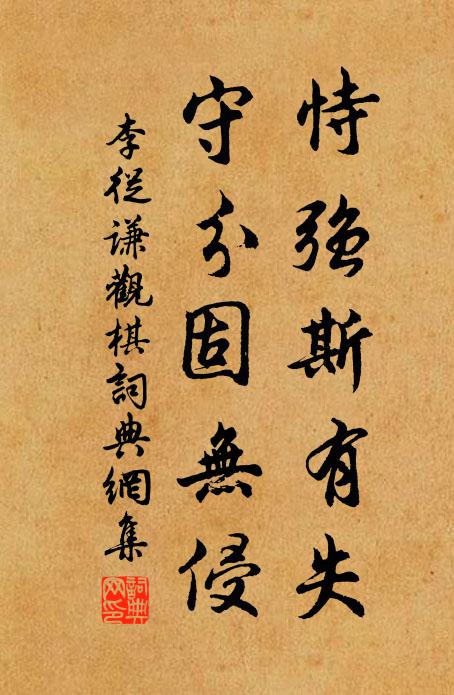 恃強斯有失
守分固無侵
李從謙觀棋詞典網集
詞典網印